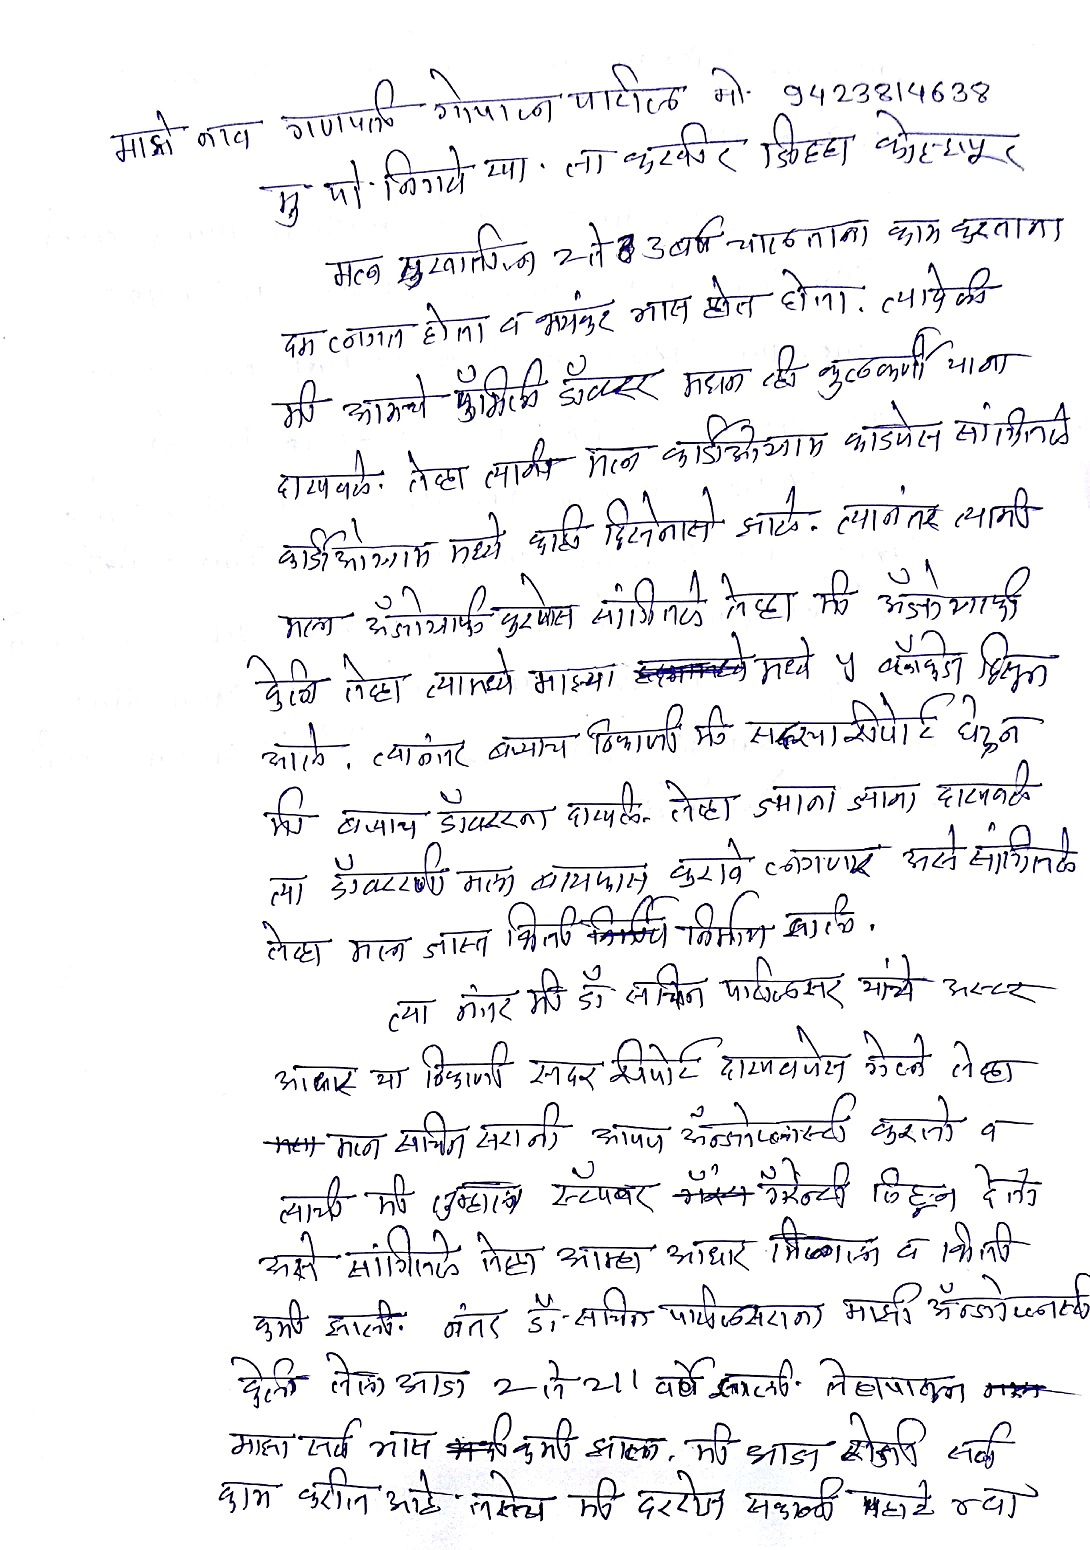 माझे नाव गणपती गोपाळ पाटील मो. 9423814638
मु. पो. निगवे खा. ता करवीर जिल्हा कोल्हापूर
मला सुरवातीला 2 ते 3 वर्षे चालताना काम करताना
दम लागत होता व भयंकर त्रास होत होता. त्यावेळी
मी आमचे फॅमिली डॉक्टर मदान टी कुलकर्णी याना
दाखवले. तेव्हा त्यानी मला कार्डीओग्राम काडणेस सांगितले
कार्डीओग्राम मध्ये काही दिसेनासे झाले. त्यानंतर त्यानी
मला अँजोग्राफी करणेस सांगितले तेव्हा मी अँजोग्राफी
केली तेव्हा त्यामध्ये माझ्या मध्ये ५ ब्लॅाकेज दिसून
आले. त्यानंतर बऱ्याच ठिकाणी मी सदरचा रिपोर्ट घेऊन
मी बऱ्याच डॉक्टरना दाखवले. तेव्हा ज्याना ज्याना दाखवले
त्या डॉक्टरांनी मला बायपास करावे लागणार असे सांगितले
तेव्हा मला जास्त भिती निर्माण झाली.
त्या नंतर मी डॉ. सचिन पाटीलसर यांचे अस्टर
आधार या ठिकाणी सदर रिपोर्ट दाखवणेस गेलो तेव्हा
मला सचिन सरांनी आपण अँन्जोप्लास्टी करतो व
त्याची मी तुम्हाला स्टॅंपवर गॅरेन्टी लिहून देतो
असे सांगितले तेव्हा आम्हा आधार मिळाला व भिती
कमी झाली. नंतर डॉ. सचिन पाटीलसरांना माझी अँन्जोप्लास्टी
केली तेला आज 2 ते 2॥ वर्षे झाली. तेव्हापासून
माझा सर्व त्रास कमी झाला. मी आज शेतीची सर्व
काम करीत आहे तसेच मी दररोज सकाळी पहाटे ४ वा